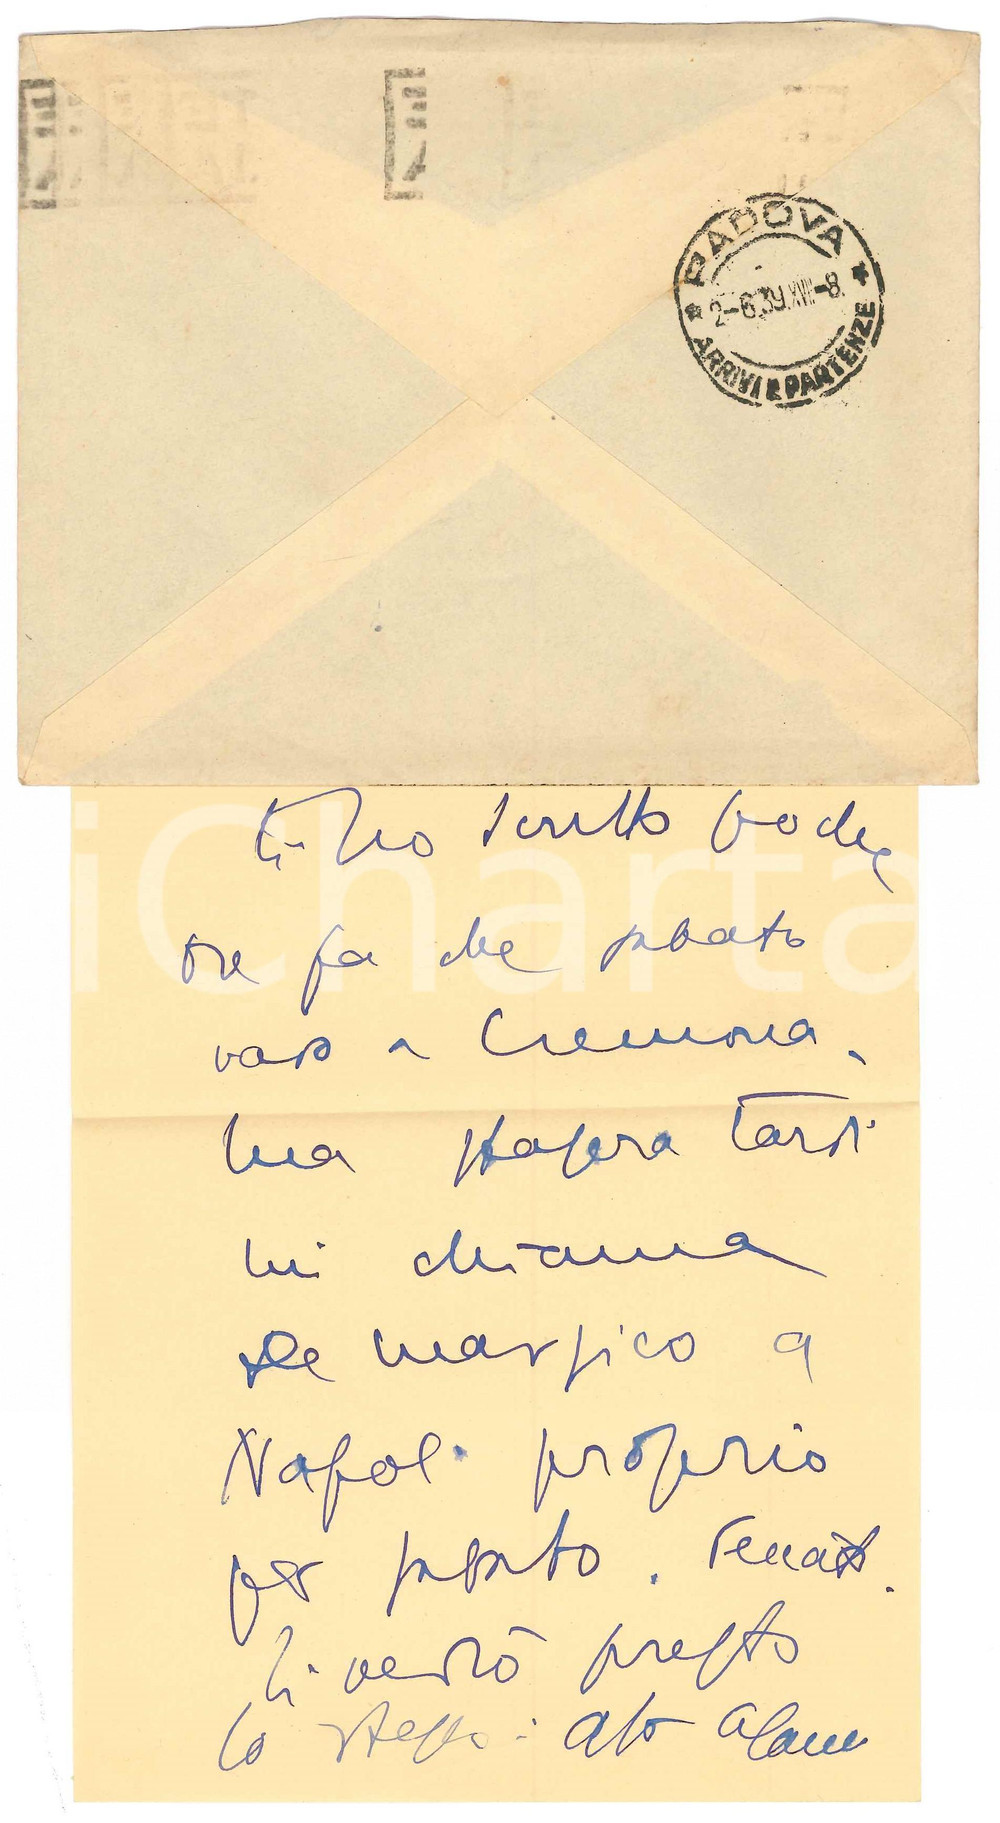 PADOVA
2-6.39.XVII-8
ARRIVI E PARTENZE
iCharta
ti ho scritto poche
ore fa che sabato
vado a Cremona.
Ma stasera tardi
mi chiama
De Marsico a
Napoli proprio
per sabato.
Ti vedrò presto
lo stesso: